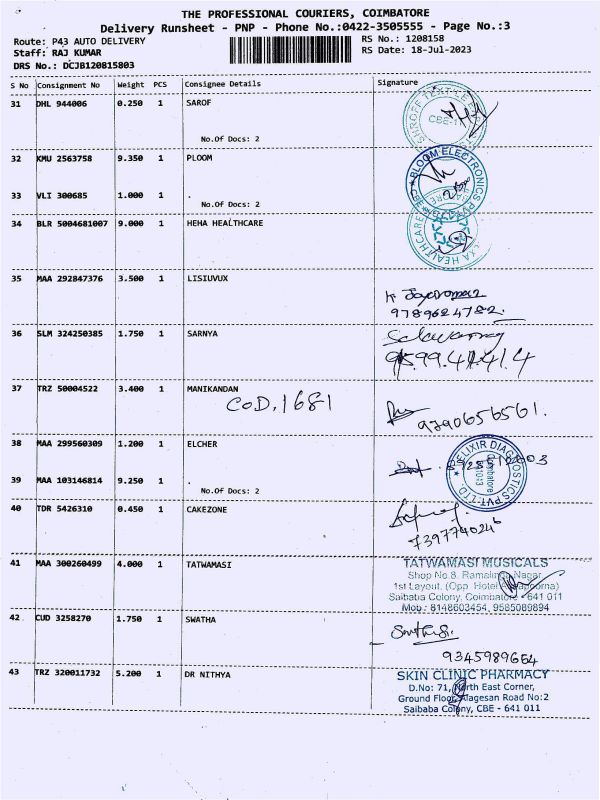 THE PROFESSIONAL COURIERS, COIMBATORE
Delivery Runsheet - PNP - Phone No.:0422-3505555 - Page No.:3
Route: P43 AUTO DELIVERY
RS No.: 1208158
Staff: RAJ KUMAR
RS Date: 18-Jul-2023
DRS No.: DCJB120815803
S No Consignment No Weight PCS Consignee Details Signature
31 DHL 944006 0.250 1 SAROF
No.Of Docs: 2
CBE-11
32 KMU 2563758 9.350 1 PLOOM
BLOOM ELECTRONICS PVT
33 VLI 300685 1.000 1 .
No.Of Docs: 2
34 BLR 5004681007 9.000 1 HEHA HEALTHCARE
EXA HEALTHCARE
35 MAA 292847376 3.500 1 LISIUVUX
9789624782
36 SLM 324250385 1.750 1 SARNYA
37 TRZ 50004522 3.400 1 MANIKANDAN
COD.1681
9790656561.
38 MAA 299560309 1.200 1 ELCHER
ELIXIR DIAGNOSTICS PVT. LTD.
39 MAA 103146814 9.250 1 .
No.Of Docs: 2
40 TDR 5426310 0.450 1 CAKEZONE
7397740246
41 MAA 300260499 4.000 1 TATWAMASI
TATWAMASI MUSICALS
Shop No.8, Ramalinga Nagar,
1st Layout, (Opp. Hotel Annapoorna)
Saibaba Colony, Coimbatore - 641 011
Mob.: 8148603454, 9585089894
42 CUD 3258270 1.750 1 SWATHA
Swathi.S.
9345989664
43 TRZ 320011732 5.200 1 DR NITHYA
SKIN CLINIC PHARMACY
D.No: 71, North East Corner,
Ground Floor, Alagesan Road No:2
Saibaba Colony, CBE - 641 011